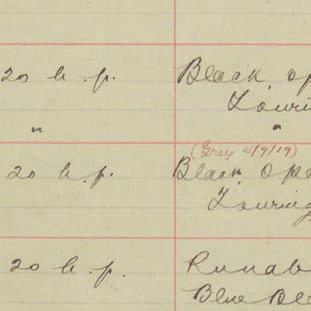 20 h.p. Black, op
Touri
" "
(Grey 15/9/19)
20 h.p. Black, Ope
Touring
20 h.p. Runab
Blue Bl